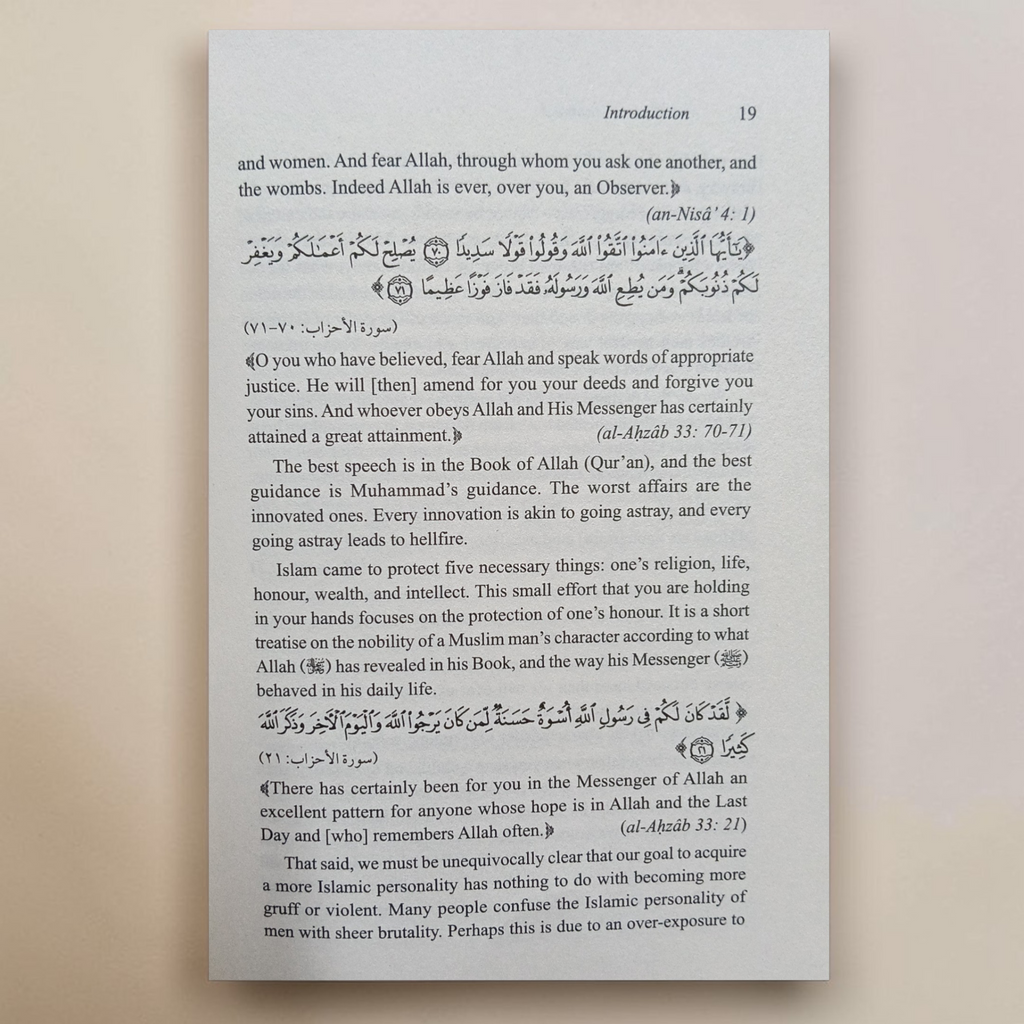 Introduction 19
and women. And fear Allah, through whom you ask one another, and
the wombs. Indeed Allah is ever, over you, an Observer.﴾
(an-Nisâ’ 4: 1)
﴿يَـٰٓأَيُّهَا ٱلَّذِينَ ءَامَنُوا۟ ٱتَّقُوا۟ ٱللَّهَ وَقُولُوا۟ قَوْلًا سَدِيدًا ۝٧٠ يُصْلِحْ لَكُمْ أَعْمَـٰلَكُمْ وَيَغْفِرْ
لَكُمْ ذُنُوبَكُمْ ۗ وَمَن يُطِعِ ٱللَّهَ وَرَسُولَهُۥ فَقَدْ فَازَ فَوْزًا عَظِيمًا ۝٧١﴾
(سورة الأحزاب: ٧٠-٧١)
﴿O you who have believed, fear Allah and speak words of appropriate
justice. He will [then] amend for you your deeds and forgive you
your sins. And whoever obeys Allah and His Messenger has certainly
attained a great attainment.﴾ (al-Aḥzâb 33: 70-71)
The best speech is in the Book of Allah (Qur’an), and the best
guidance is Muhammad’s guidance. The worst affairs are the
innovated ones. Every innovation is akin to going astray, and every
going astray leads to hellfire.
Islam came to protect five necessary things: one’s religion, life,
honour, wealth, and intellect. This small effort that you are holding
in your hands focuses on the protection of one’s honour. It is a short
treatise on the nobility of a Muslim man’s character according to what
Allah (ﷻ) has revealed in his Book, and the way his Messenger (ﷺ)
behaved in his daily life.
﴿لَّقَدْ كَانَ لَكُمْ فِى رَسُولِ ٱللَّهِ أُسْوَةٌ حَسَنَةٌ لِّمَن كَانَ يَرْجُوا۟ ٱللَّهَ وَٱلْيَوْمَ ٱلْـَٔاخِرَ وَذَكَرَ ٱللَّهَ
كَثِيرًا ۝٢١﴾ (سورة الأحزاب: ٢١)
﴿There has certainly been for you in the Messenger of Allah an
excellent pattern for anyone whose hope is in Allah and the Last
Day and [who] remembers Allah often.﴾ (al-Aḥzâb 33: 21)
That said, we must be unequivocally clear that our goal to acquire
a more Islamic personality has nothing to do with becoming more
gruff or violent. Many people confuse the Islamic personality of
men with sheer brutality. Perhaps this is due to an over-exposure to